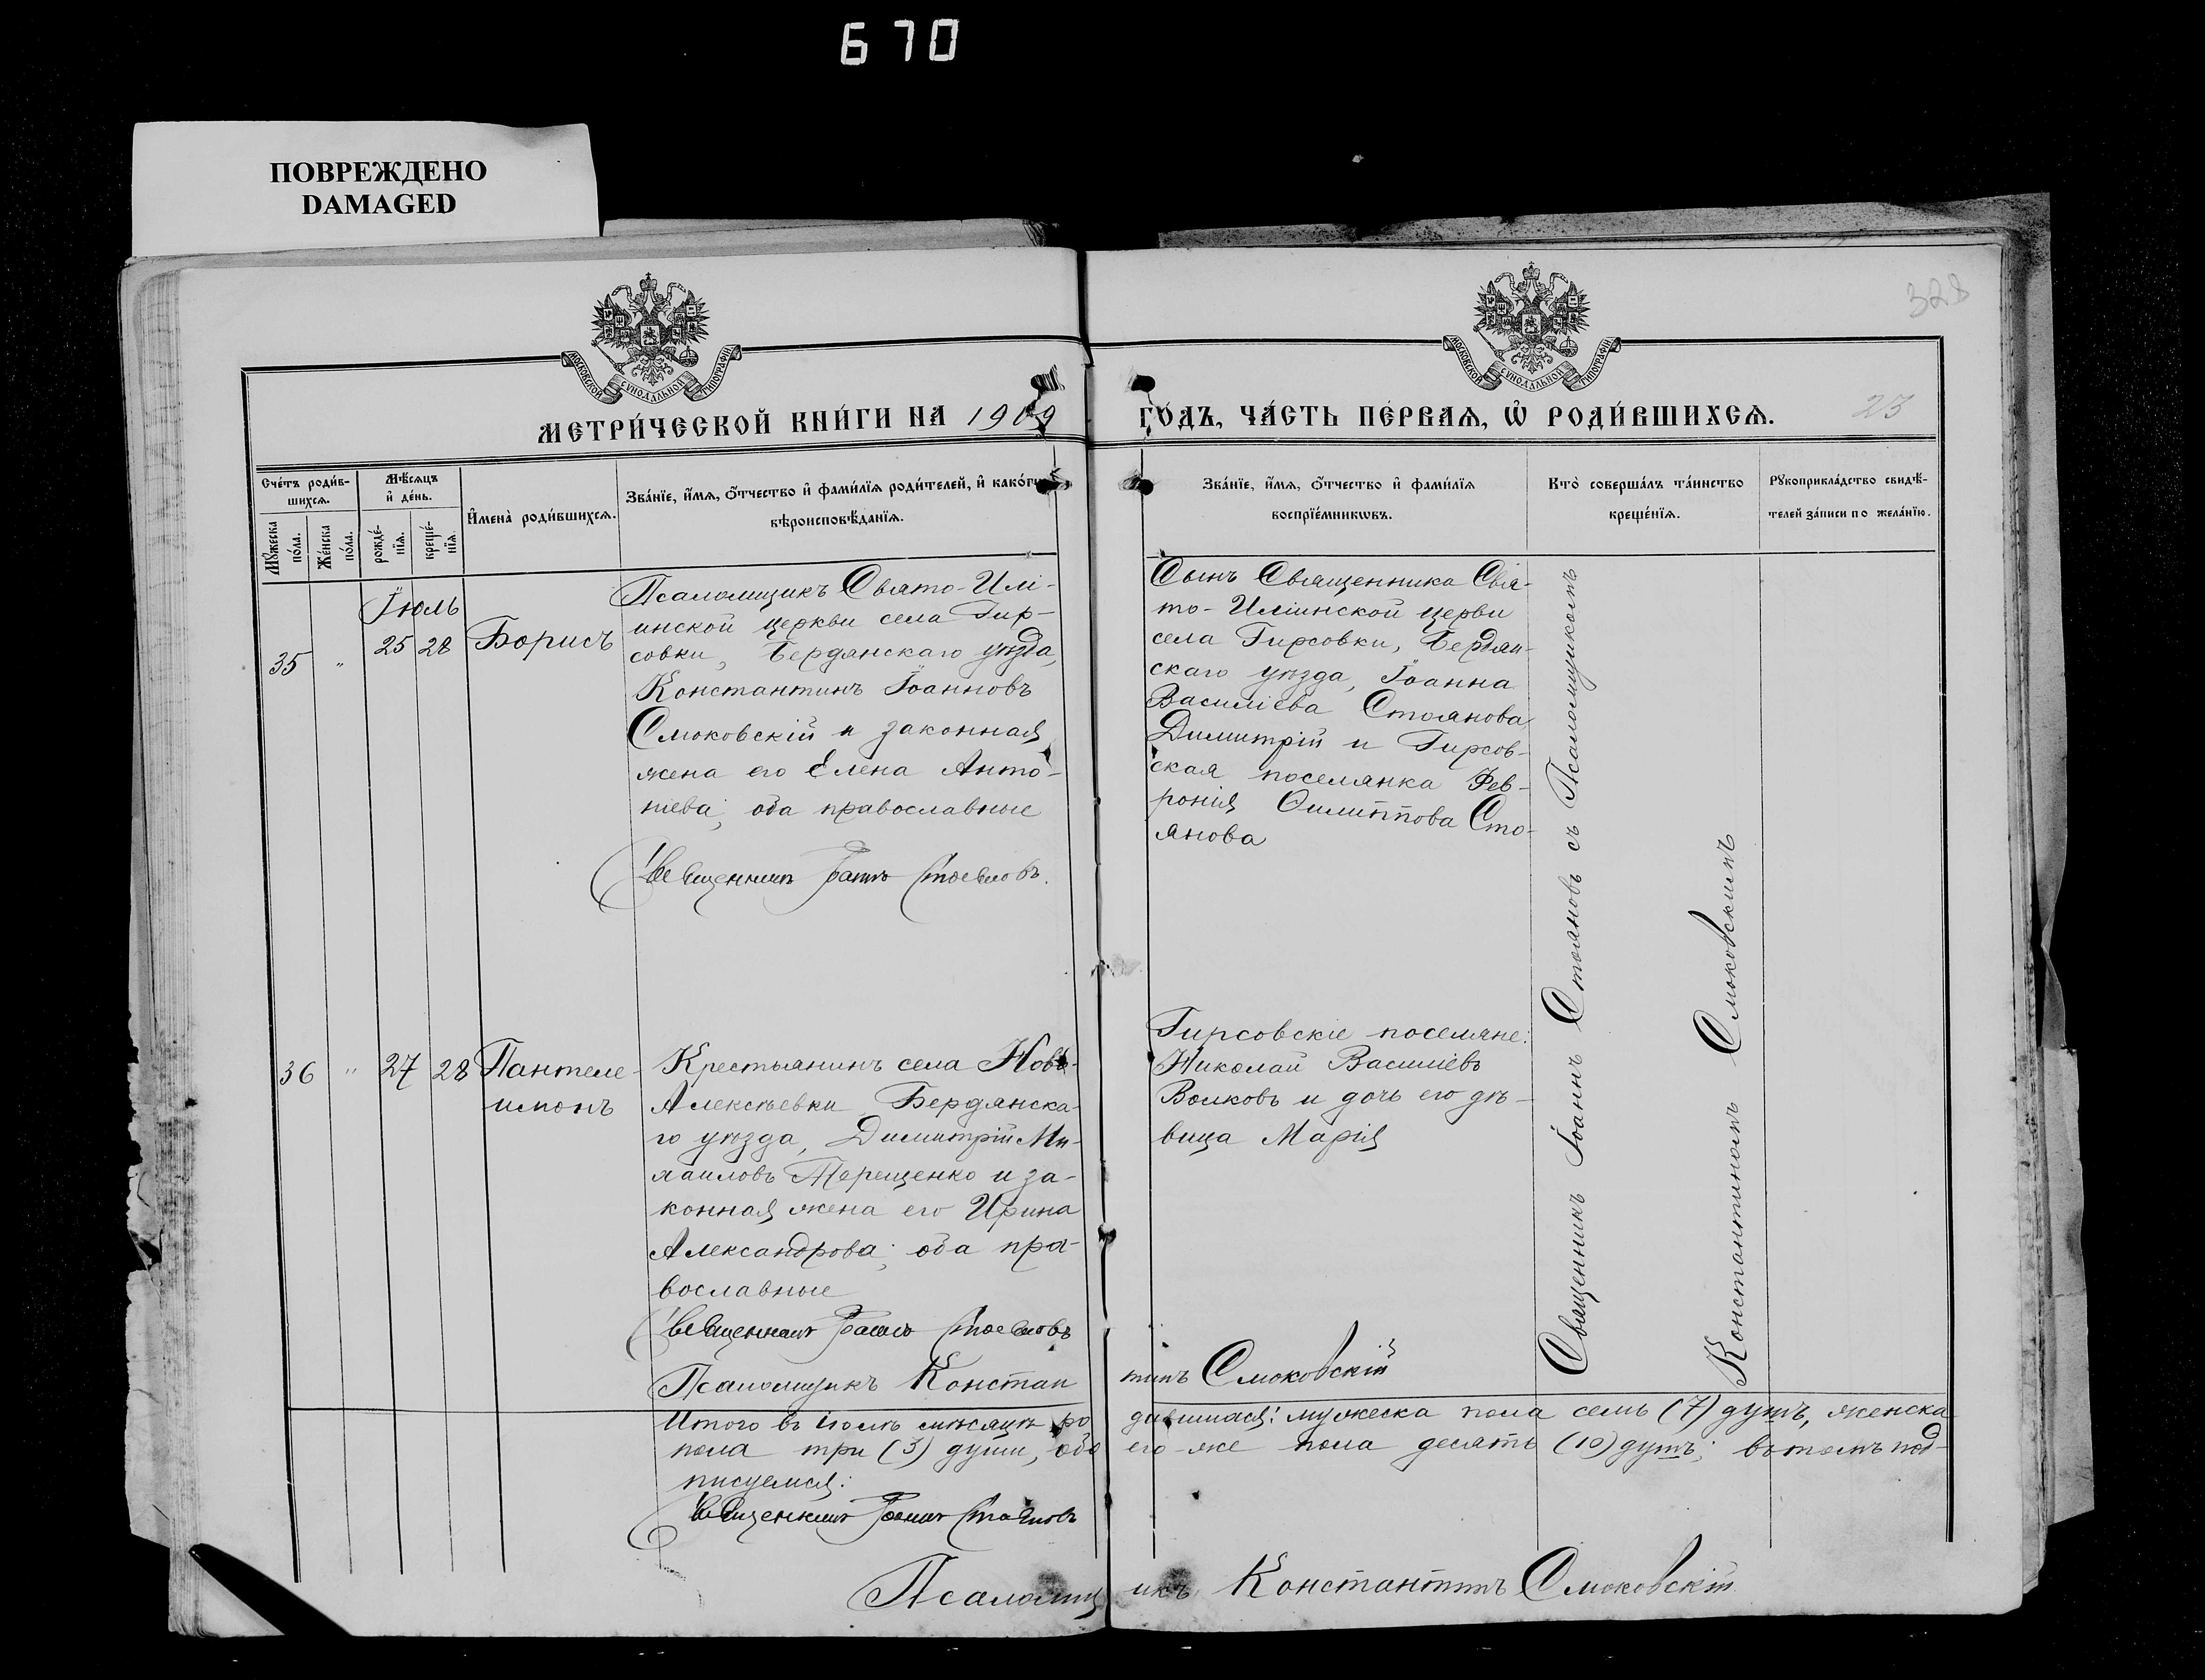 670
ПОВРЕЖДЕНО
DAMAGED
328
МОСКОВСКОЙ СУНОДАЛЬНОЙ ТИПОГРАФІИ
МОСКОВСКОЙ СУНОДАЛЬНОЙ ТИПОГРАФІИ
МЕТРИ́ЧЕСКОЙ КНИ́ГИ НА 1909
ГО́ДЪ, ЧА́СТЬ ПЕ́РВАѦ, Ѡ҆ РОДИ́ВШИХСѦ.
23
Сче́тъ роди́в-
шихсѧ.
Мꙋ́жеска
по́ла.
Же́нска
по́ла.
Мѣ́сѧцъ
и҆ де́нь.
рожде́-
нїѧ.
креще́-
нїѧ.
И҆мена̀ роди́вшихсѧ.
Зва́нїе, и҆́мѧ, ѻ҆́тчество и҆ фами́лїѧ роди́телей, и҆ како́гѡ
вѣроисповѣ́данїѧ.
Зва́нїе, и҆́мѧ, ѻ҆́тчество и҆ фами́лїѧ
воспрїе́мникѡвъ.
Кто̀ соверша́лъ та́инство
креще́нїѧ.
Рꙋкоприкла́дство свидѣ́-
телей за́писи по жела́нїю.
Іюль
35 " 25 28 Борисъ
Псаломщикъ Свято-Илі-
инской церкви села Гир-
совки, Бердянскаго уѣзда,
Константинъ Іоанновъ
Смоковскій и законная
жена его Елена Анто-
ніева; оба православные
Священникъ Іоаннъ Стояновъ.
Сынъ Священника Свя-
то-Иліинской церви
села Гирсовки, Бердян-
скаго уѣзда, Іоанна
Василіева Стоянова,
Димитрій и Гирсов-
ская поселянка Фев-
ронія Филиппова Сто-
янова
36 " 27 28 Пантеле-
имонъ
Крестьянинъ села Ново-
Алексѣевки Бердянска-
го уѣзда, Димитрій Ми-
хаиловъ Терещенко и за-
конная жена его Ирина
Александрова; оба пра-
вославные
Священникъ Іоаннъ Стояновъ
Гирсовскіе поселяне:
Николай Василіевъ
Волковъ и дочь его дѣ-
вица Марія
Священникъ Іоаннъ Стояновъ съ Псаломщикомъ
Константиномъ Смоковскимъ
Псаломщикъ Констан тинъ Смоковскій
Итого въ іюлѣ мѣсяцѣ ро дившихся: мужеска пола семь (7) душъ, женска
пола три (3) души, обо его же пола десять (10) душъ; въ томъ под-
писуемся:
Священникъ Іоаннъ Стояновъ
Псаломщ икъ Константинъ Смоковскій